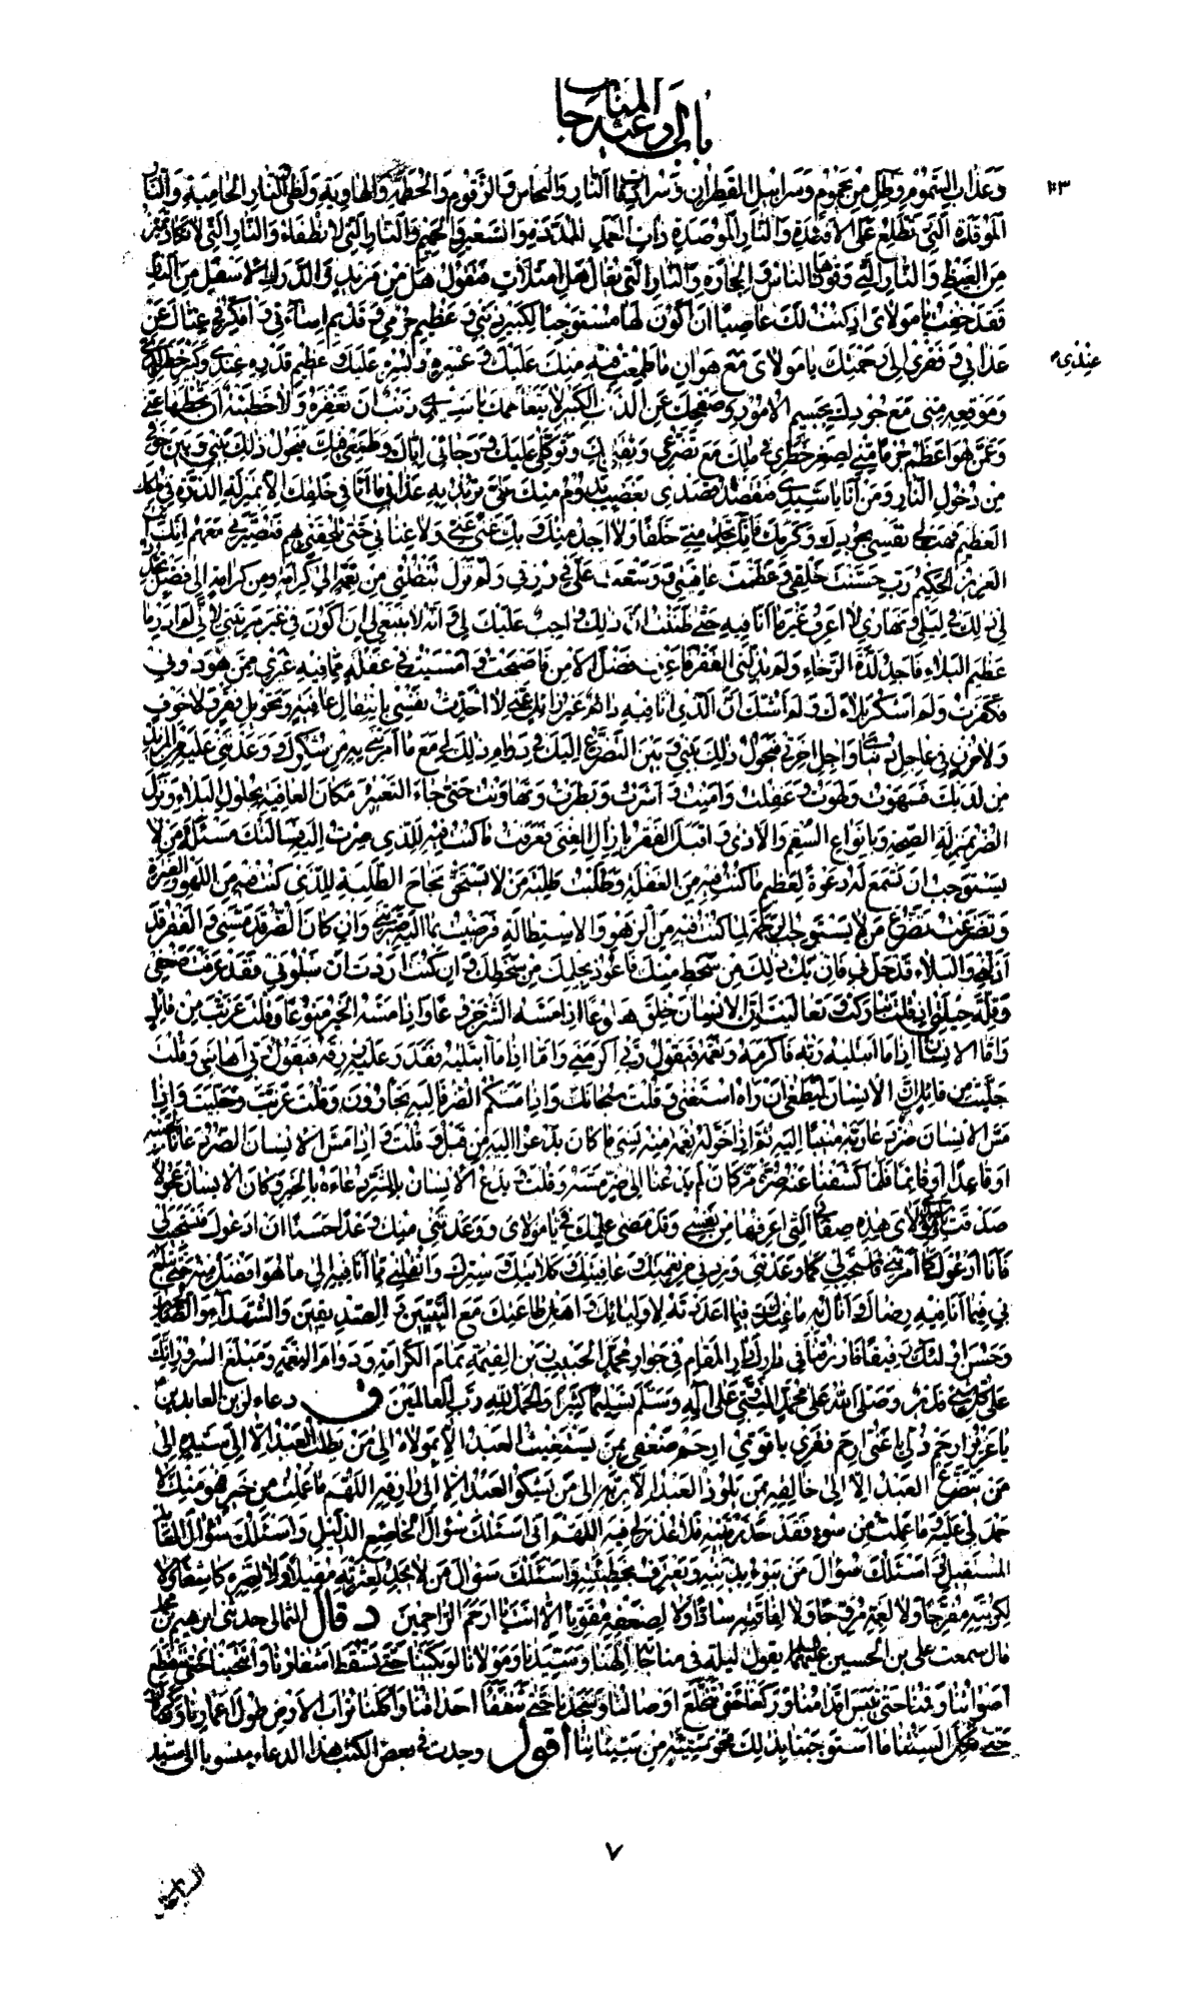 باب أدعية المناجاة
١٢٣
وَعَذابِ السَّمُومِ وَظِلٍّ مِنْ يَحْمُومٍ وَسَرابِيلِ القَطِرانِ وَالنُّحاسِ وَالزَّقُّومِ وَالحُطَمَةِ وَالهاوِيَةِ وَلَظى وَالنّارِ الحامِيَةِ وَالنّارِ
المُوقَدَةِ الَّتِي تَطَّلِعُ عَلَى الأَفْئِدَةِ وَالنّارِ المُوصَدَةِ ذاتِ العَمَدِ المُمَدَّدَةِ وَالسَّعِيرِ وَالحَمِيمِ وَالنّارِ الَّتِي لا تُطْفَأُ وَالنّارِ الَّتِي تَكادُ تَمَيَّزُ
مِنَ الغَيْظِ وَالنّارِ الَّتِي وَقُودُهَا النّاسُ وَالحِجارَةُ وَالنّارِ الَّتِي يُقالُ هَلِ امْتَلَأْتِ فَتَقُولُ هَلْ مِنْ مَزِيدٍ وَالدَّرَكِ الأَسْفَلِ مِنَ النّارِ
فَقَدْ خِفْتُ يا مَوْلايَ إِذْ كُنْتُ لَكَ عاصِيًا أَنْ أَكُونَ لَها مُسْتَوْجِبًا لِكَبِيرِ ذَنْبِي وَعَظِيمِ جُرْمِي وَقَدِيمِ إِساءَتِي وَأُفَكِّرُ فِي غِناكَ عَنْ
عَذابِي وَفَقْرِي إِلى رَحْمَتِكَ يا مَوْلايَ مَعَ هَوانِ ما طَمِعْتُ فِيهِ مِنْكَ عَلَيْكَ وَعُسْرِهِ وَيُسْرِهِ عَلَيْكَ وَعَظِيمِ قَدْرِهِ عِنْدِي وَكِبَرِ خَطَرِهِ لَدَيَّ
عِنْدِي
وَمَوْقِعِهِ مِنِّي مَعَ جُودِكَ بِجَسِيمِ الأُمُورِ وَصَفْحِكَ عَنِ الذَّنْبِ الكَبِيرِ لا يَتَعاظَمُكَ يا سَيِّدِي ذَنْبٌ أَنْ تَغْفِرَهُ وَلا خَطِيئَةٌ أَنْ تَحُطَّها عَنِّي
وَعَمَّنْ هُوَ أَعْظَمُ جُرْمًا مِنِّي لِصِغَرِ خَطَرِي فِي مُلْكِكَ مَعَ تَضَرُّعِي وَتَوَكُّلِي عَلَيْكَ وَرَجائِي إِيّاكَ وَطَمَعِي فِيكَ فَيَحُولُ ذلِكَ بَيْنِي وَبَيْنَ خَوْفِي
مِنْ دُخُولِ النّارِ وَمَنْ أَنَا يا سَيِّدِي فَتَقْصِدَ قَصْدِي بِغَضَبٍ يَدُومُ مِنْكَ عَلَيَّ تُرِيدُ بِهِ عَذابِي ما أَنَا فِي خَلْقِكَ إِلّا بِمَنْزِلَةِ الذَّرَّةِ فِي مُلْكِكَ
العَظِيمِ فَهَبْ لِي نَفْسِي بِجُودِكَ وَكَرَمِكَ فَإِنَّكَ تَجِدُ مِنِّي خَلَفًا وَلا أَجِدُ مِنْكَ وَبِكَ غِنًى عَنِّي وَلا غِنى بِي حَتّى تُلْحِقَنِي بِهِمْ فَتُصَيِّرَنِي مَعَهُمْ إِنَّكَ أَنْتَ
العَزِيزُ الحَكِيمُ رَبِّ حَسَّنْتَ خَلْقِي وَعَظَّمْتَ عافِيَتِي وَوَسَّعْتَ عَلَيَّ فِي رِزْقِي وَلَمْ تَزَلْ تَنْقُلُنِي مِنْ نِعْمَةٍ إِلى كَرامَةٍ وَمِنْ كَرامَةٍ إِلى فَضْلٍ تُجَدِّدُ
لِي ذلِكَ فِي لَيْلِي وَنَهارِي لا أَعْرِفُ غَيْرَ ما أَنَا فِيهِ حَتّى ظَنَنْتُ أَنَّ ذلِكَ واجِبٌ عَلَيْكَ لِي وَأَنَّهُ لا يَنْبَغِي لِي أَنْ أَكُونَ فِي غَيْرِ مَرْتَبَتِي لِأَنِّي لَمْ أَدْرِ ما
عَظِيمُ البَلاءِ فَأَجِدَ لَذَّةَ الرَّخاءِ وَلَمْ يُذِلَّنِي الفَقْرُ فَأَعْرِفَ فَضْلَ الأَمْنِ فَأَصْبَحْتُ وَأَمْسَيْتُ فِي غَفْلَةٍ مِمّا فِيهِ غَيْرِي مِمَّنْ هُوَ دُونِي
فَكَفَرْتُ وَلَمْ أَشْكُرْ بَلاءَكَ وَلَمْ أَشُكَّ أَنَّ الَّذِي أَنَا فِيهِ دائِمٌ غَيْرُ زائِلٍ عَنِّي لا أُحَدِّثُ نَفْسِي بِانْتِقالِ عافِيَةٍ وَتَحْوِيلِ فَقْرٍ وَلا خَوْفٍ
وَلا حُزْنٍ فِي عاجِلِ دُنْيايَ وَآجِلِ آخِرَتِي فَيَحُولُ ذلِكَ بَيْنِي وَبَيْنَ التَّضَرُّعِ إِلَيْكَ فِي دَوامِ ذلِكَ لِي مَعَ ما أَمَرْتَنِي بِهِ مِنْ شُكْرِكَ وَوَعَدْتَنِي عَلَيْهِ مِنَ المَزِيدِ
مِنْ لَدَيْكَ فَسَهَوْتُ وَلَهَوْتُ وَغَفَلْتُ وَأَمِنْتُ وَأَشِرْتُ وَبَطِرْتُ وَتَهاوَنْتُ حَتّى جاءَ التَّغْيِيرُ مَكانَ العافِيَةِ بِحُلُولِ البَلاءِ وَنَزَلَ
الضُّرُّ بِمَنْزِلَةِ الصِّحَّةِ وَبِأَنْواعِ السُّقْمِ وَالأَذى وَأَقْبَلَ الفَقْرُ بِإِزاءِ الغِنى فَعَرَفْتُ ما كُنْتُ فِيهِ لِلَّذِي صِرْتُ إِلَيْهِ فَسَأَلْتُكَ مَسْأَلَةَ مَنْ لا
يَسْتَوْجِبُ أَنْ تَسْمَعَ لَهُ دَعْوَةً لِعَظِيمِ ما كُنْتُ فِيهِ مِنَ الغَفْلَةِ وَطَلَبْتُ طَلِبَةَ مَنْ لا يَسْتَحِقُّ نَجاحَ الطَّلِبَةِ لِلَّذِي كُنْتُ فِيهِ مِنَ اللَّهْوِ وَالغِرَّةِ
وَتَضَرَّعْتُ تَضَرُّعَ مَنْ لا يَسْتَوْجِبُ الرَّحْمَةَ لِما كُنْتُ فِيهِ مِنَ الزَّهْوِ وَالاسْتِطالَةِ فَرَضِيتُ بِما إِلَيْهِ صَيَّرْتَنِي وَإِنْ كانَ الضُّرُّ قَدْ مَسَّنِي وَالفَقْرُ قَدْ
أَذَلَّنِي وَالبَلاءُ قَدْ حَلَّ بِي فَإِنْ يَكُ ذلِكَ مِنْ سَخَطٍ مِنْكَ فَأَعُوذُ بِحِلْمِكَ مِنْ سَخَطِكَ وَإِنْ كُنْتَ أَرَدْتَ أَنْ تَبْلُوَنِي فَقَدْ عَرَفْتَ ضَعْفِي
وَقِلَّةَ حِيلَتِي إِذْ قُلْتَ تَبارَكْتَ وَتَعالَيْتَ إِنَّ الإِنْسانَ خُلِقَ هَلُوعًا إِذا مَسَّهُ الشَّرُّ جَزُوعًا وَإِذا مَسَّهُ الخَيْرُ مَنُوعًا وَقُلْتَ عَزَّيْتَ مِنْ قائِلٍ
فَأَمَّا الإِنْسانُ إِذا مَا ابْتَلاهُ رَبُّهُ فَأَكْرَمَهُ وَنَعَّمَهُ فَيَقُولُ رَبِّي أَكْرَمَنِ وَأَمّا إِذا مَا ابْتَلاهُ فَقَدَرَ عَلَيْهِ رِزْقَهُ فَيَقُولُ رَبِّي أَهانَنِ وَقُلْتَ
جَلَّيْتَ مِنْ قائِلٍ إِنَّ الإِنْسانَ لَيَطْغى أَنْ رَآهُ اسْتَغْنى وَقُلْتَ سُبْحانَكَ وَإِذا مَسَّكُمُ الضُّرُّ فَإِلَيْهِ تَجْأَرُونَ وَقُلْتَ عَزَّيْتَ وَجَلَّيْتَ وَإِذا
مَسَّ الإِنْسانَ ضُرٌّ دَعا رَبَّهُ مُنِيبًا إِلَيْهِ ثُمَّ إِذا خَوَّلَهُ نِعْمَةً مِنْهُ نَسِيَ ما كانَ يَدْعُو إِلَيْهِ مِنْ قَبْلُ وَقُلْتَ وَإِذا مَسَّ الإِنْسانَ الضُّرُّ دَعانا لِجَنْبِهِ
أَوْ قاعِدًا أَوْ قائِمًا فَلَمّا كَشَفْنا عَنْهُ ضُرَّهُ مَرَّ كَأَنْ لَمْ يَدْعُنا إِلى ضُرٍّ مَسَّهُ وَقُلْتَ يَدْعُ الإِنْسانُ بِالشَّرِّ دُعاءَهُ بِالخَيْرِ وَكانَ الإِنْسانُ عَجُولًا
صَدَقْتَ يا مَوْلايَ هذِهِ صِفاتِي الَّتِي أَعْرِفُها مِنْ نَفْسِي وَقَدْ مَضى عِلْمُكَ فِيَّ يا مَوْلايَ وَوَعَدْتَنِي مِنْكَ وَعْدًا حَسَنًا أَنْ أَدْعُوَكَ فَتَسْتَجِيبَ لِي
فَأَنَا أَدْعُوكَ كَما أَمَرْتَنِي فَاسْتَجِبْ لِي كَما وَعَدْتَنِي وَزِدْنِي مِنْ نِعْمَتِكَ وَعافِيَتِكَ وَكَلاءَتِكَ وَسِتْرِكَ وَانْقُلْنِي مِمّا أَنَا فِيهِ إِلى ما هُوَ أَفْضَلُ مِنْهُ حَتّى تَبْلُغَ
بِي فِيما أَنَا فِيهِ رِضاكَ وَأَنالَ بِهِ ما عِنْدَكَ فِيما أَعْدَدْتَهُ لِأَوْلِيائِكَ وَأَهْلِ طاعَتِكَ مَعَ النَّبِيِّينَ وَالصِّدِّيقِينَ وَالشُّهَداءِ وَالصّالِحِينَ
وَحَسُنَ أُولئِكَ رَفِيقًا فَارْزُقْنا فِي دارِكَ دارِ المُقامِ فِي جِوارِ مُحَمَّدٍ الحَبِيبِ زَيْنِ القِيمَةِ تَمامَ الكَرامَةِ وَدَوامَ النِّعْمَةِ وَمَبْلَغَ السُّرُورِ إِنَّكَ
عَلى كُلِّ شَيْءٍ قَدِيرٌ وَصَلَّى اللهُ عَلى مُحَمَّدٍ النَّبِيِّ وَعَلى آلِهِ وَسَلَّمَ تَسْلِيمًا كَثِيرًا وَالحَمْدُ لِلّهِ رَبِّ العالَمِينَ ق دعاء لزين العابدين
يا عَزِيزُ ارْحَمْ ذُلِّي يا غَنِيُّ ارْحَمْ فَقْرِي يا قَوِيُّ ارْحَمْ ضَعْفِي بِمَنْ يَسْتَغِيثُ العَبْدُ إِلّا بِمَوْلاهُ إِلى مَنْ يَطْلُبُ العَبْدُ إِلّا إِلى سَيِّدِهِ إِلى
مَنْ يَتَضَرَّعُ العَبْدُ إِلّا إِلى خالِقِهِ بِمَنْ يَلُوذُ العَبْدُ إِلّا بِرَبِّهِ إِلى مَنْ يَشْكُو العَبْدُ إِلّا إِلى رازِقِهِ اللّهُمَّ ما عَمِلْتُ مِنْ خَيْرٍ فَهُوَ مِنْكَ لا
حَمْدَ لِي عَلَيْهِ وَما عَمِلْتُ مِنْ سُوءٍ فَقَدْ حَذَّرْتَنِيهِ فَلا عُذْرَ لِي فِيهِ اللّهُمَّ إِنِّي أَسْأَلُكَ سُؤالَ الخاضِعِ الذَّلِيلِ وَأَسْأَلُكَ سُؤالَ العائِذِ
المُسْتَقِيلِ وَأَسْأَلُكَ سُؤالَ مَنْ يَبُوءُ بِذَنْبِهِ وَيَعْتَرِفُ بِخَطِيئَتِهِ وَأَسْأَلُكَ سُؤالَ مَنْ لا يَجِدُ لِعَثْرَتِهِ مُقِيلًا وَلا لِضُرِّهِ كاشِفًا وَلا
لِكُرْبَتِهِ مُفَرِّجًا وَلا لِغَمِّهِ مُرَوِّحًا وَلا لِفاقَتِهِ سادًّا وَلا لِضَعْفِهِ مُقَوِّيًا إِلّا أَنْتَ يا أَرْحَمَ الرّاحِمِينَ د قال الثمالي حدثني إبراهيم بن محمد
قال سمعت علي بن الحسين عليهما السلام يقول ليلة في مناجاته إِلهَنا وَسَيِّدَنا وَمَوْلانا لَوْ بَكَيْنا حَتّى تَسْقُطَ أَشْفارُنا وَانْتَحَبْنا حَتّى يَنْقَطِعَ
أَصْواتُنا وَقُمْنا حَتّى تَيْبَسَ أَقْدامُنا وَرَكَعْنا حَتّى تَنْخَلِعَ أَوْصالُنا وَسَجَدْنا حَتّى تَتَفَقَّأَ أَحْداقُنا وَأَكَلْنا تُرابَ الأَرْضِ طُولَ أَعْمارِنا وَذَكَرْناكَ
حَتّى تَكِلَّ أَلْسِنَتُنا مَا اسْتَوْجَبْنا بِذلِكَ مَحْوَ سَيِّئَةٍ مِنْ سَيِّئاتِنا أقول وجدت في بعض الكتب هذا الدعاء منسوبا إلى سيد
٧